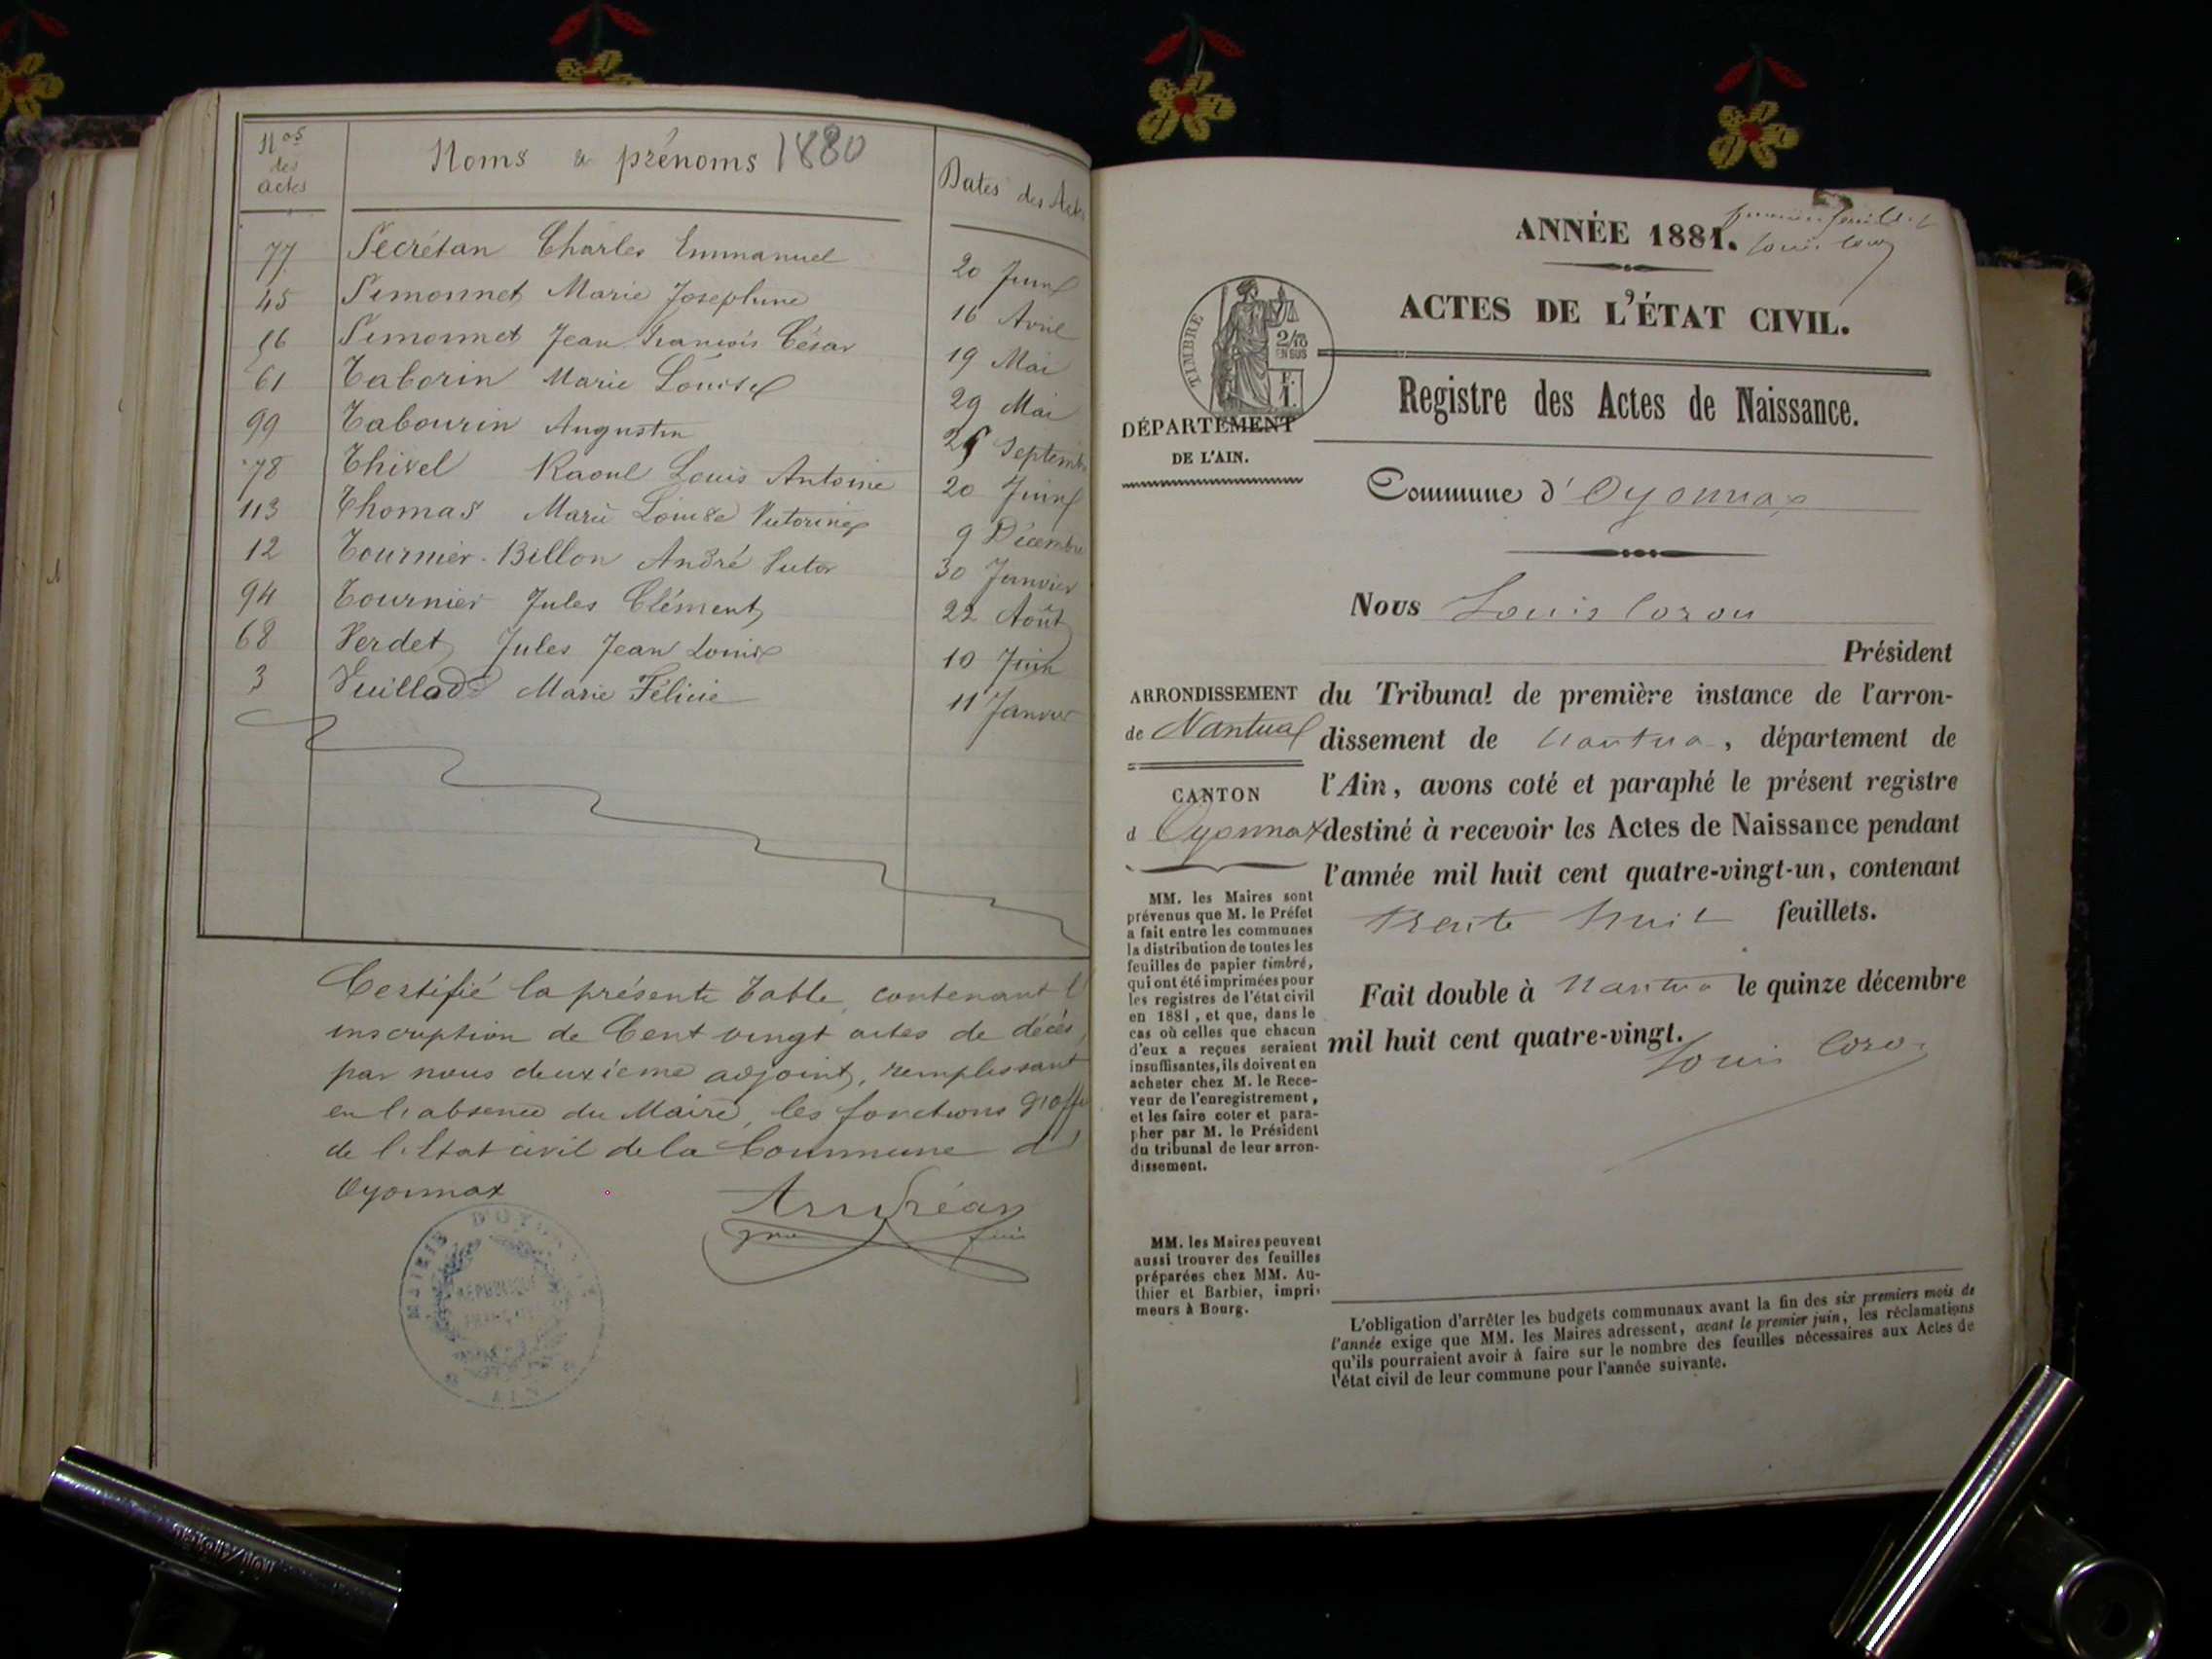 Nos des actes Noms & prénoms 1880 Dates des Actes
77 Secrétan Charles Emmanuel 20 Juin
45 Simonnet Marie Josephine 16 Avril
Simonnet Jean François César 19 Mai
61 Taborin Marie Louise 29 Mai
99 Tabourin Augustin Septembre
78 Raoul Louis Antoine 20 Juin
113 Thomas Marie Louise Victorine 9 Décembre
12 Tournier-Billon André Victor 30 Janvier
94 Tournier Jules Clément 22 Août
68 Verdet Jules Jean Louis 10 Juin
3 Vuillad Marie Félicie 11 Janvier
Certifié la présente Table, contenant l'
inscription de Cent vingt actes de décès,
par nous deuxième adjoint, remplissant
en l'absence du Maire, les fonctions d'off
de l'Etat civil de la Commune d'
Oyonnax
MAIRIE D'OYONNAX
RÉPUBLIQUE
FRANÇAISE
AIN
premier feuillet
ANNÉE 1881.
ACTES DE L'ÉTAT CIVIL.
TIMBRE
2/10
EN SUS
F.
1.
DÉPARTEMENT
DE L'AIN.
Registre des Actes de Naissance.
Commune d'Oyonnax
Nous Louis Coron
Président
du Tribunal de première instance de l'arron-
dissement de Nantua, département de
l'Ain, avons coté et paraphé le présent registre
destiné à recevoir les Actes de Naissance pendant
l'année mil huit cent quatre-vingt-un, contenant
trente huit feuillets.
Fait double à Nantua le quinze décembre
mil huit cent quatre-vingt.
Louis Coron
ARRONDISSEMENT
de Nantua
CANTON
d Oyonnax
MM. les Maires sont
prévenus que M. le Préfet
a fait entre les communes
la distribution de toutes les
feuilles de papier timbré,
qui ont été imprimées pour
les registres de l'état civil
en 1881, et que, dans le
cas où celles que chacun
d'eux a reçues seraient
insuffisantes, ils doivent en
acheter chez M. le Rece-
veur de l'enregistrement,
et les faire coter et para-
pher par M. le Président
du tribunal de leur arron-
dissement.
MM. les Maires peuvent
aussi trouver des feuilles
préparées chez MM. Au-
thier et Barbier, impri-
meurs à Bourg.
L'obligation d'arrêter les budgets communaux avant la fin des six premiers mois de
l'année exige que MM. les Maires adressent, avant le premier juin, les réclamations
qu'ils pourraient avoir à faire sur le nombre des feuilles nécessaires aux Actes de
l'état civil de leur commune pour l'année suivante.